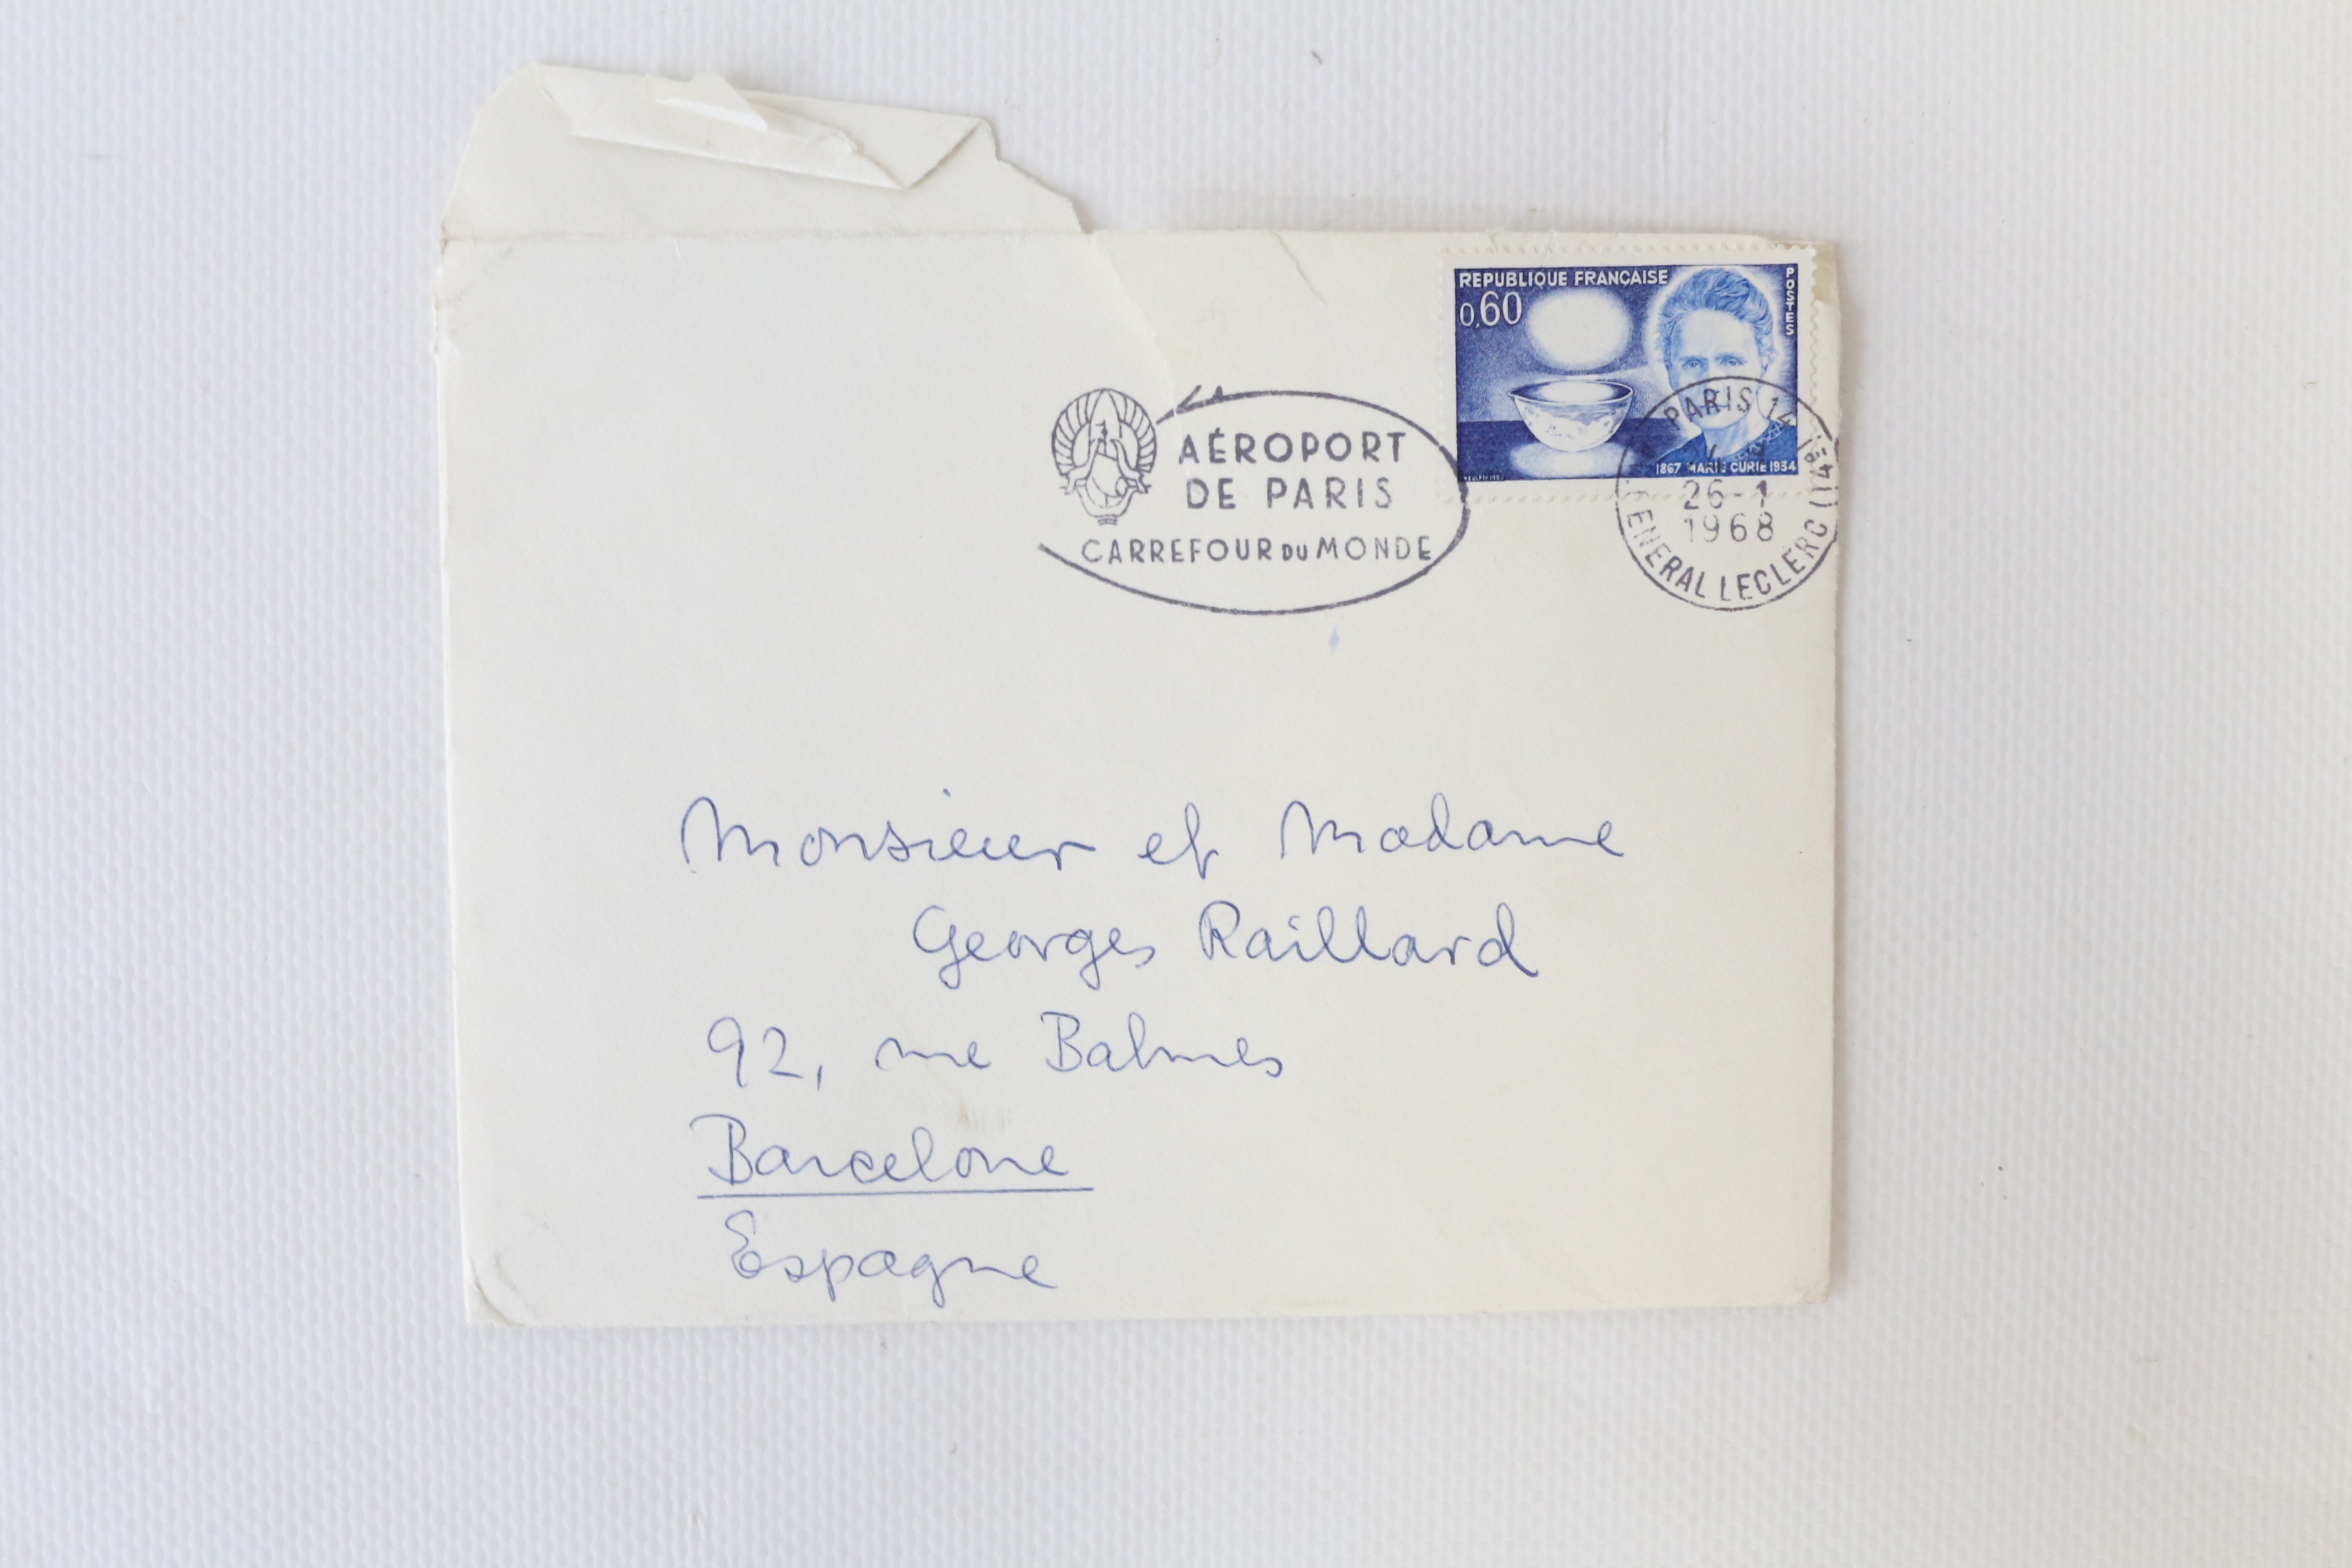 REPUBLIQUE FRANÇAISE
POSTES
0,60
1867 MARIE CURIE 1934
AÉROPORT
DE PARIS
CARREFOUR DU MONDE
PARIS 14
26-1
1968
GENERAL LECLERC (14E)
Monsieur et Madame
Georges Raillard
92, rue Balmes
Barcelone
Espagne